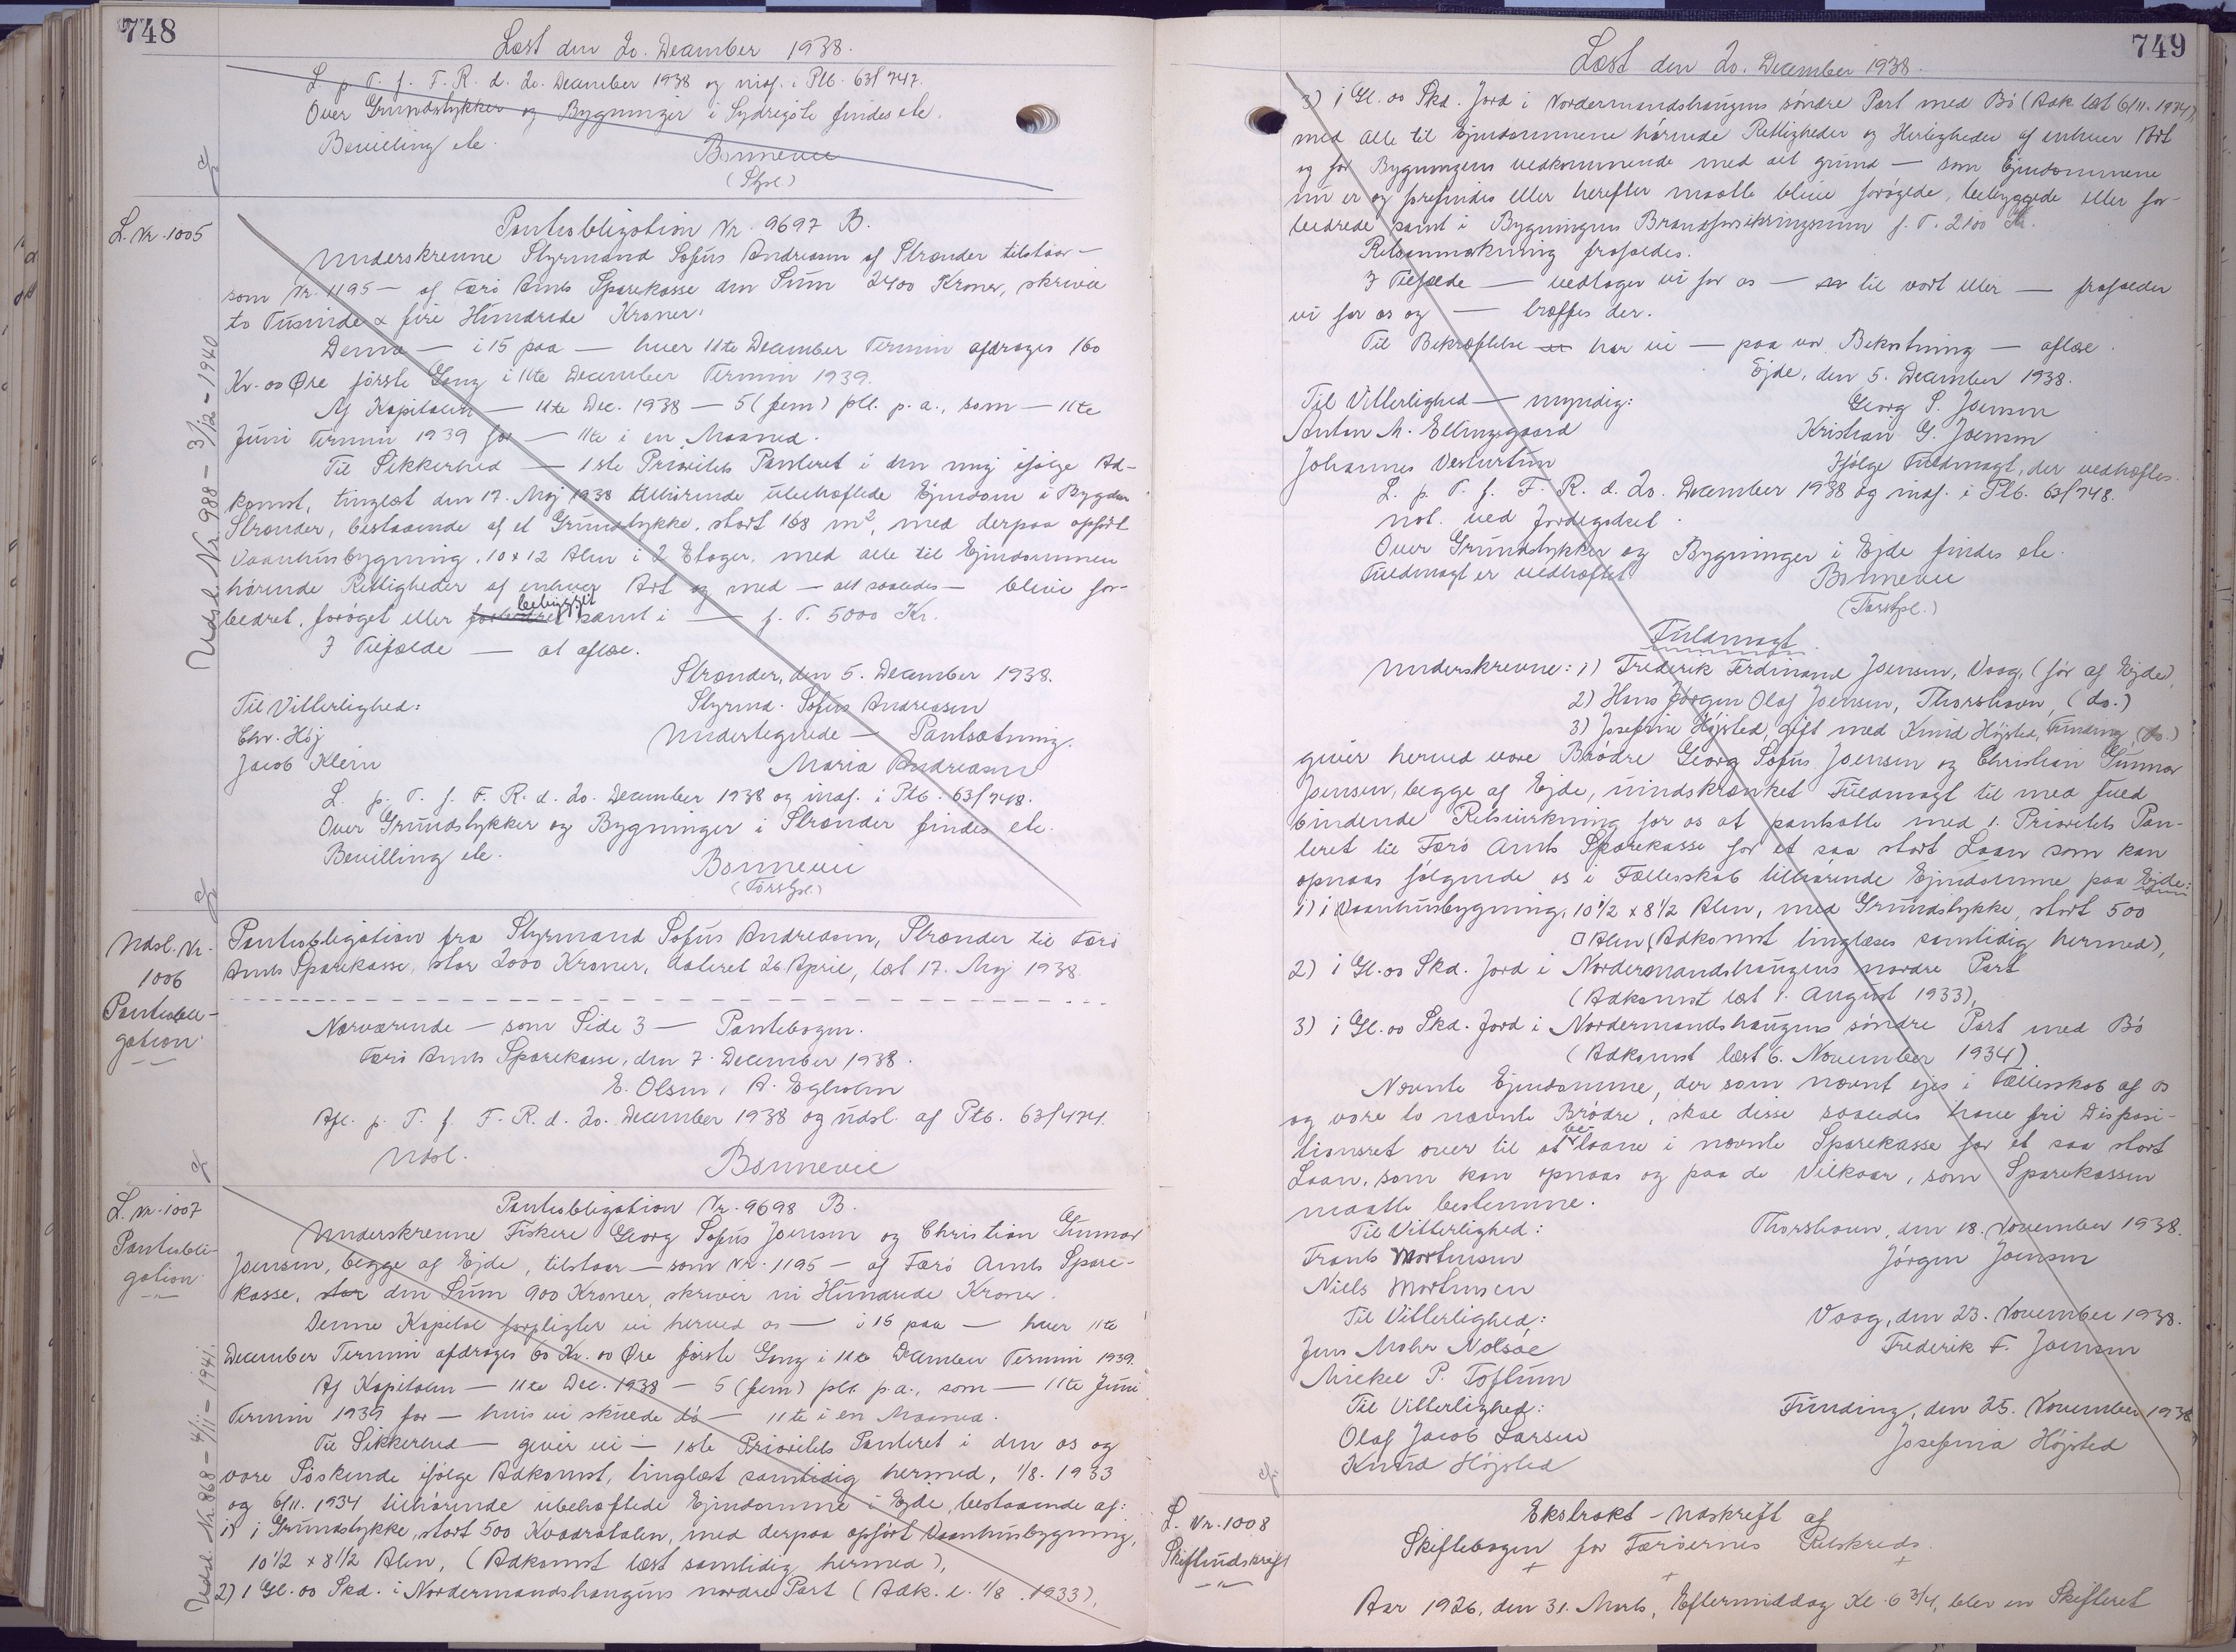 748
Læst den 20. December 1938.
L. p. T. f. F. R. d. 20. December 1938 og indf. i Ptb. 63f 747.
Over Grundstykker og Bygninger i Sydregøte findes ele.
Bevilling ele.
Bonnevie
(Stpl.)
L. Nr. 1005
Udsl. Nr. 988 - 3/12 - 1940
Pantobligation Nr. 9697 B.
Underskrevne Styrmand Sofus Andreasen af Strænder tilstaar —
som Nr. 1195 — af Færø Amts Sparekasse den Sum 2400 Kroner, skriver
to Tusinde & fire Hundrede Kroner.
Denne — i 15 paa — hver 11te December Termin afdrages 160
Kr. 00 Øre første Gang i 11te December Termin 1939.
Af Kapitalen — 11te Dec. 1938 — 5 (fem) pCt. p. a., som — 11te
Juni Termin 1939 for — 11te i en Maaned.
Til Sikkerhed — 1ste Prioritets Panteret i den mig ifølge Ad-
komst, tinglæst den 17. Maj 1938 tilhørende ubehæftede Ejendom i Bygden
Strænder, bestaaende af et Grundstykke, stort 168 m², med derpaa opført
Vaaanhusbygning, 10 x 12 Alen i 2 Etager, med alle til Ejendommen
hørende Rettigheder af enhver Art og med — alt saaledes — blive for-
bedret, forøget eller forbedret bebygget samt i — f. T. 5000 Kr.
I Tilfælde — at aflæse.
Strænder, den 5. December 1938.
Til Vitterlighed: Styrmd. Sofus Andreasen
Chr. Høj Undertegnede — Pantsætning.
Jacob Klein Maria Andreasen
L. p. T. f. F. R. d. 20. December 1938 og indf. i Ptb. 63f 748.
Over Grundstykker og Bygninger i Strænder findes ele.
Bevilling ele.
Bonnevie
(Torsfpl.)
Udsl. Nr.
1006
Pantobli-
gation
Pantobligation fra Styrmand Sofus Andreasen, Strænder til Færø
Amts Sparekasse, stor 2000 Kroner, dateret 26 April, læst 17. Maj 1938.
Nærværende — som Side 3 — Pantebogen.
Færø Amts Sparekasse, den 7. December 1938.
E. Olsen, A. Egholm
Afl. p. T. f. F. R. d. 20. December 1938 og udsl. af Ptb. 63f 474.
Udsl. Bonnevie
L. Nr. 1007
Pantobli-
gation
Udsl. Nr. 868 - 4/11 - 1941.
Pantobligation Nr. 9698 B.
Underskrevne Fiskere Georg Sofus Joensen og Christian Gunnar
Joensen, begge af Ejde, tilstaar — som Nr. 1195 — af Færø Amts Spare-
kasse, stor den Sum 900 Kroner, skriver ni Hundrede Kroner.
Denne Kapital forpligter vi herved os — i 15 paa — hver 11te
December Termin afdrages 60 Kr. 00 Øre første Gang i 11te December Termin 1939.
Af Kapitalen — 11te Dec. 1938 — 5 (fem) pCt. p. a., som — 11te Juni
Termin 1939 for — hvis vi skulde dø — 11te i en Maaned.
Til Sikkerhed — giver vi — 1ste Prioritets Panteret i den os og
vore Søskende ifølge Adkomst, tinglæst samtidig hermed, 1/8. 1933
og 6/11. 1934 tilhørende ubehæftede Ejendomme i Ejde, bestaaende af:
1) i Grundstykke, stort 500 Kvadratalen, med derpaa opført Vaanhusbygning,
10 1/2 x 8 1/2 Alen, (Adkomst læst samtidig hermed),
2) 1 Gl. 00 Skd. i Nordermandshaugens nordre Part (Adk. l. 1/8. 1933),
749
Læst den 20. December 1938.
3) 1 Gl. 00 Skd. Jord i Nordermandshaugens søndre Part med Bø (Adk. læst 6/11. 1934),
med alle til Ejendommene hørende Rettigheder og Herligheder af enhver Art
og for Bygningens vedkommende med alt grund — som Ejendommene
nu er og forefindes eller herefter maatte blive forøgede, bebyggede eller for-
bedrede samt i Bygningens Brandforsikringssum f. T. 2100 Kr.
Retsanmærkning frafaldes.
I Tilfælde — vedtager vi for os — til vort eller — frafalder
vi for os og — træffes der.
Til Bekræftelse har vi — paa vor Bekostning — aflæse.
Ejde, den 5. December 1938.
Til Vitterlighed — myndig: Georg S. Joensen
Anton M. Ellingsgaard Kristian G. Joensen
Johannes Vesturtun Ifølge Fuldmagt, der vedhæftes.
L. p. T. f. F. R. d. 20. December 1938 og indf. i Ptb. 63f 748.
not. ved Jordegodset.
Over Grundstykker og Bygninger i Ejde findes ele.
Fuldmagt er vedhæftet Bonnevie
(Torsfpl.)
Fuldmagt.
Underskrevne: 1) Frederik Ferdinand Joensen, Vaag, (før af Ejde),
2) Hans Jørgen Olaf Joensen, Thorshavn, (do.)
3) Josefine Højsted, gift med Knud Højsted, Funding (do.)
giver herved vore Brødre Georg Sofus Joensen og Christian Gunnar
Joensen, begge af Ejde, uindskrænket Fuldmagt til med fuld
bindende Retsvirkning for os at pantsætte med 1. Prioritets Pan-
teret til Færø Amts Sparekasse for et saa stort Laan som kan
opnaas følgende os i Fællesskab tilhørende Ejendomme paa Ejde:
1) i Vaanhusbygning, 10 1/2 x 8 1/2 Alen, med Grundstykke, stort 500
□ Alen (Adkomst tinglæses samtidig hermed),
2) 1 Gl. 00 Skd. Jord i Nordermandshaugens nordre Part
(Adkomst læst 1. August 1933),
3) 1 Gl. 00 Skd. Jord i Nordermandshaugens søndre Part med Bø
(Adkomst læst 6. November 1934).
Nævnte Ejendomme, der som nævnt ejes i Fællesskab af os
og vore to nævnte Brødre, skal disse saaledes have fri Disposi-
tionsret over til at belaane i nævnte Sparekasse for et saa stort
Laan, som kan opnaas og paa de Vilkaar, som Sparekassen
maatte bestemme.
Til Vitterlighed: Thorshavn, den 18. November 1938.
Frants Mortensen Jørgen Joensen
Niels Mortensen
Til Vitterlighed: Vaag, den 23. November 1938.
Jens Mohr Nolsøe Frederik F. Joensen
Mickel P. Toftum
Til Vitterlighed: Funding, den 25. November 1938
Olaf Jacob Larsen Josefina Højsted
Knud Højsted
L. Nr. 1008
Skifteudskrift
Ekstrakt - Udskrift af
Skiftebogen for Færøernes Retskreds.
Aar 1926, den 31. Marts, Eftermiddag Kl. 6 3/4, blev en Skifteret